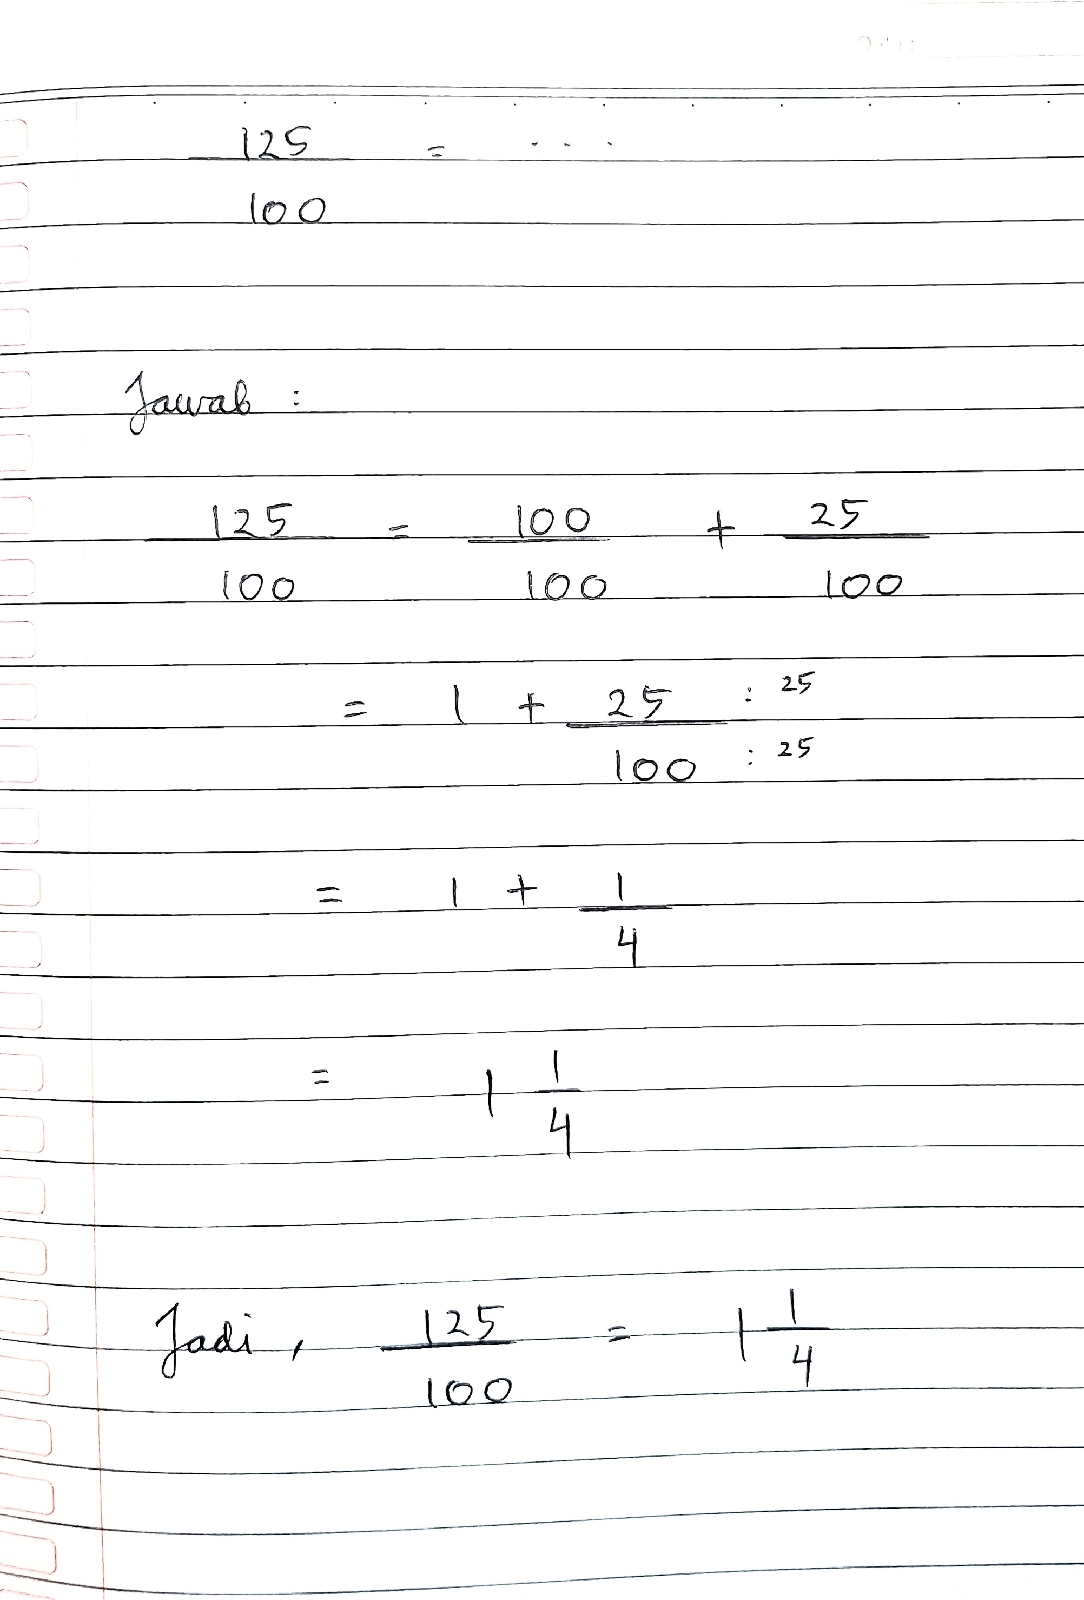 125/100 = ...
Jawab :
125/100 = 100/100 + 25/100
= 1 + 25/100 : 25 : 25
= 1 + 1/4
= 1 1/4
Jadi, 125/100 = 1 1/4